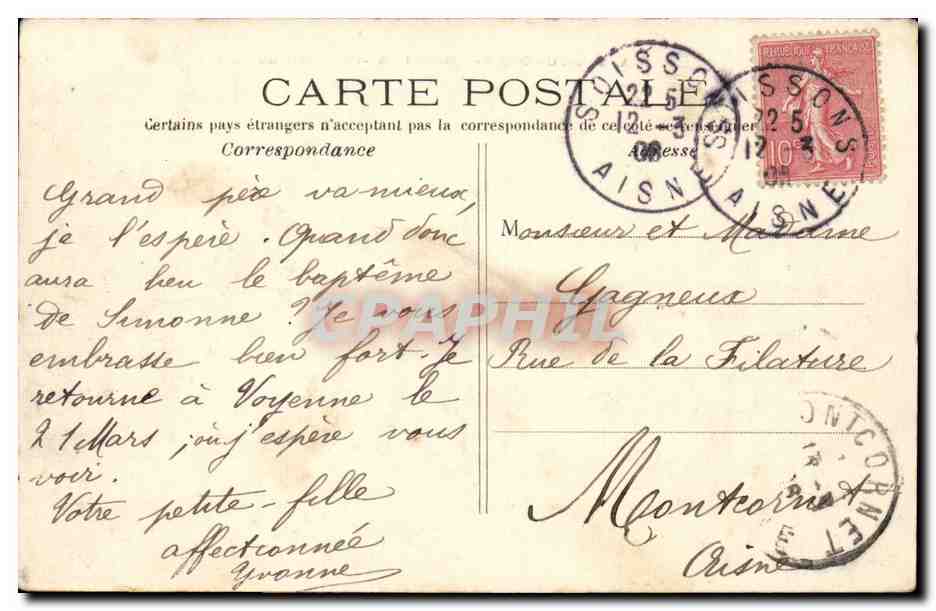 CARTE POSTALE
Certains pays étrangers n'acceptent pas la correspondance de ce côté se renseigner
Correspondance
Adresse
Grand père va mieux,
je l'espère. Quand donc
aura lieu le baptême
de Simonne ? Je vous
embrasse bien fort. Je
retourne à Voyenne le
21 Mars, où j'espère vous
voir.
Votre petite-fille
affectionnée
Yvonne
Monsieur et Madame
Gagneux
Rue de la Filature
Montcornet
Aisne
SOISSONS
22 5
12 - 3
AISNE
SOISSONS
22 5
12 3
AISNE
REPUBLIQUE FRANÇAISE
10
MONTCORNET
CPAPHIL